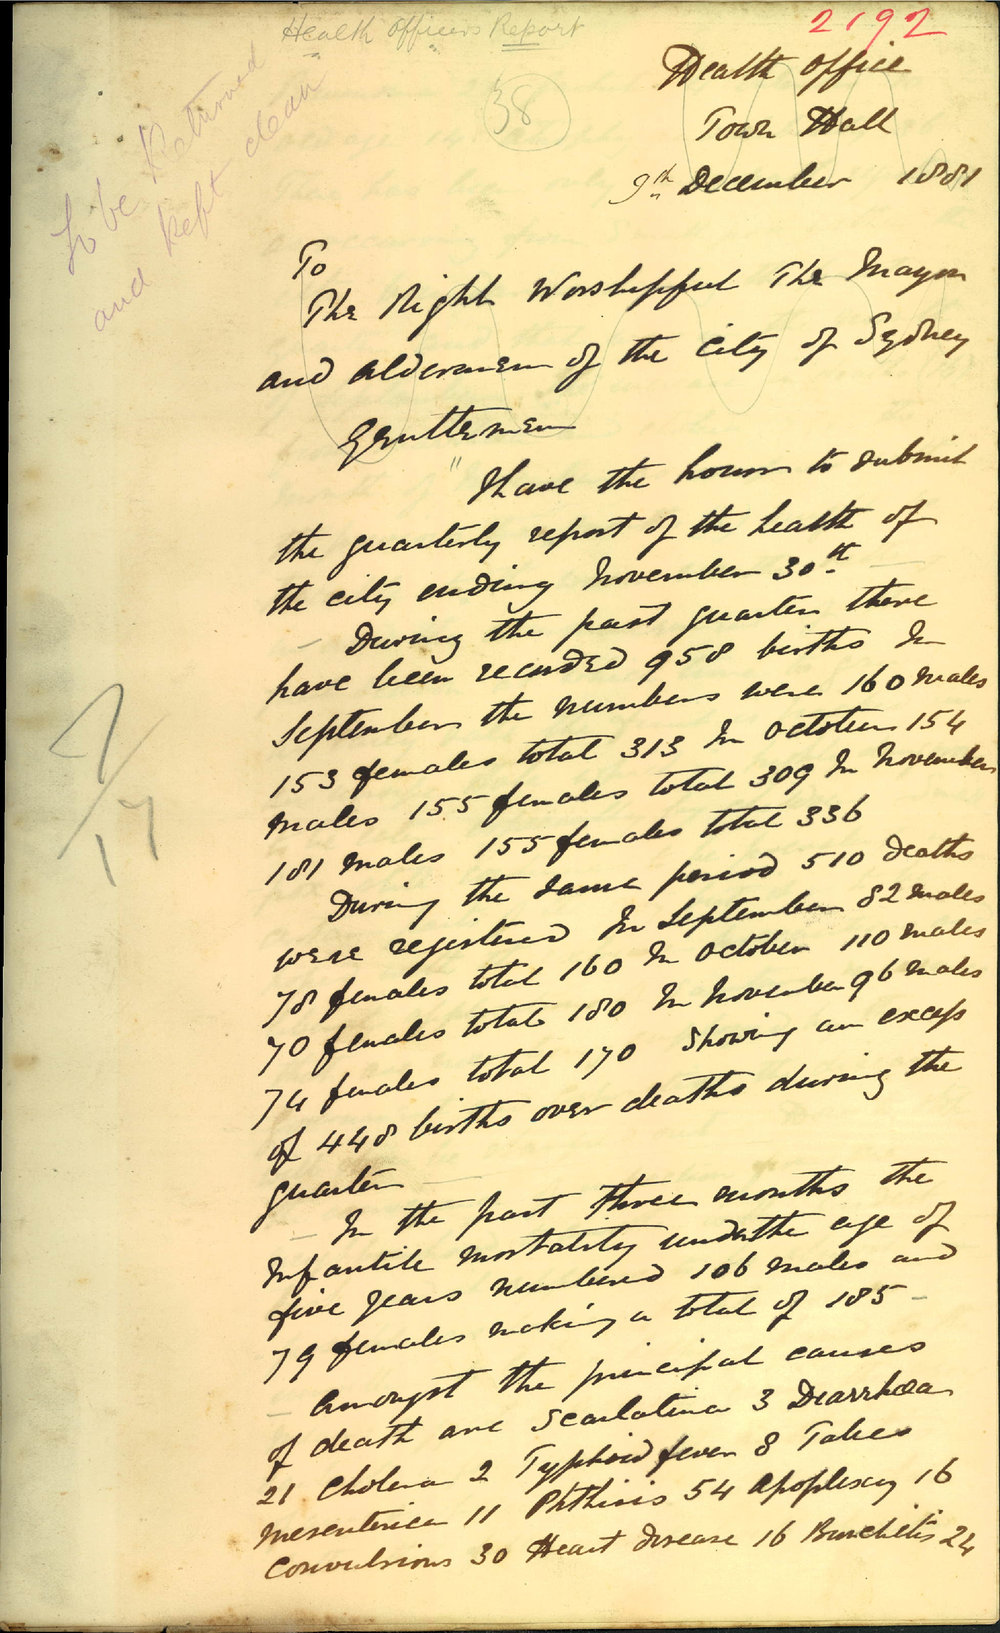 Health Officers Report
2192
38
To be Returned
and kept clean
Health Office
Town Hall
9th December 1881
To
The Right Worshipful The Mayor
and Aldermen of the City of Sydney
Gentlemen
I have the honor to submit
the quarterly report of the health of
the city ending November 30th
During the past quarter there
have been recorded 958 births In
September the numbers were 160 males
153 females total 313 In October 154
males 155 females total 309 In November
181 males 155 females total 336
During the same period 510 deaths
were registered In September 82 males
78 females total 160 In October 110 males
70 females total 180 In November 96 males
74 females total 170 Showing an excess
of 448 births over deaths during the
quarter
In the past three months the
Infantile mortality under the age of
five years numbered 106 males and
79 females making a total of 185
Amongst the principal causes
of death are Scarlatina 3 Diarrhœa
21 Cholera 2 Typhoid fever 8 Tabes
Mesenterica 11 Phthisis 54 Apoplexy 16
Convulsions 30 Heart Disease 16 Bronchitis 24